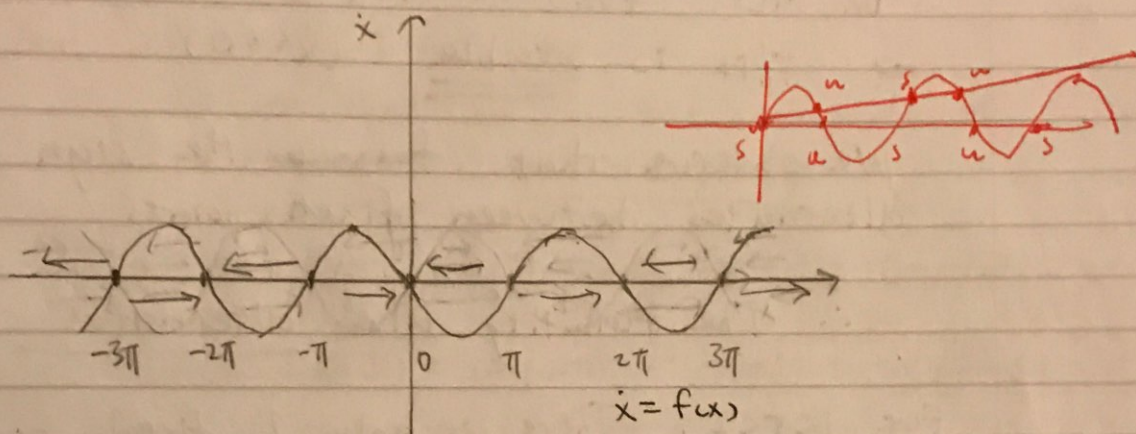 ẋ
u s u
s u s u s
-3π -2π -π 0 π 2π 3π
ẋ = f(x)